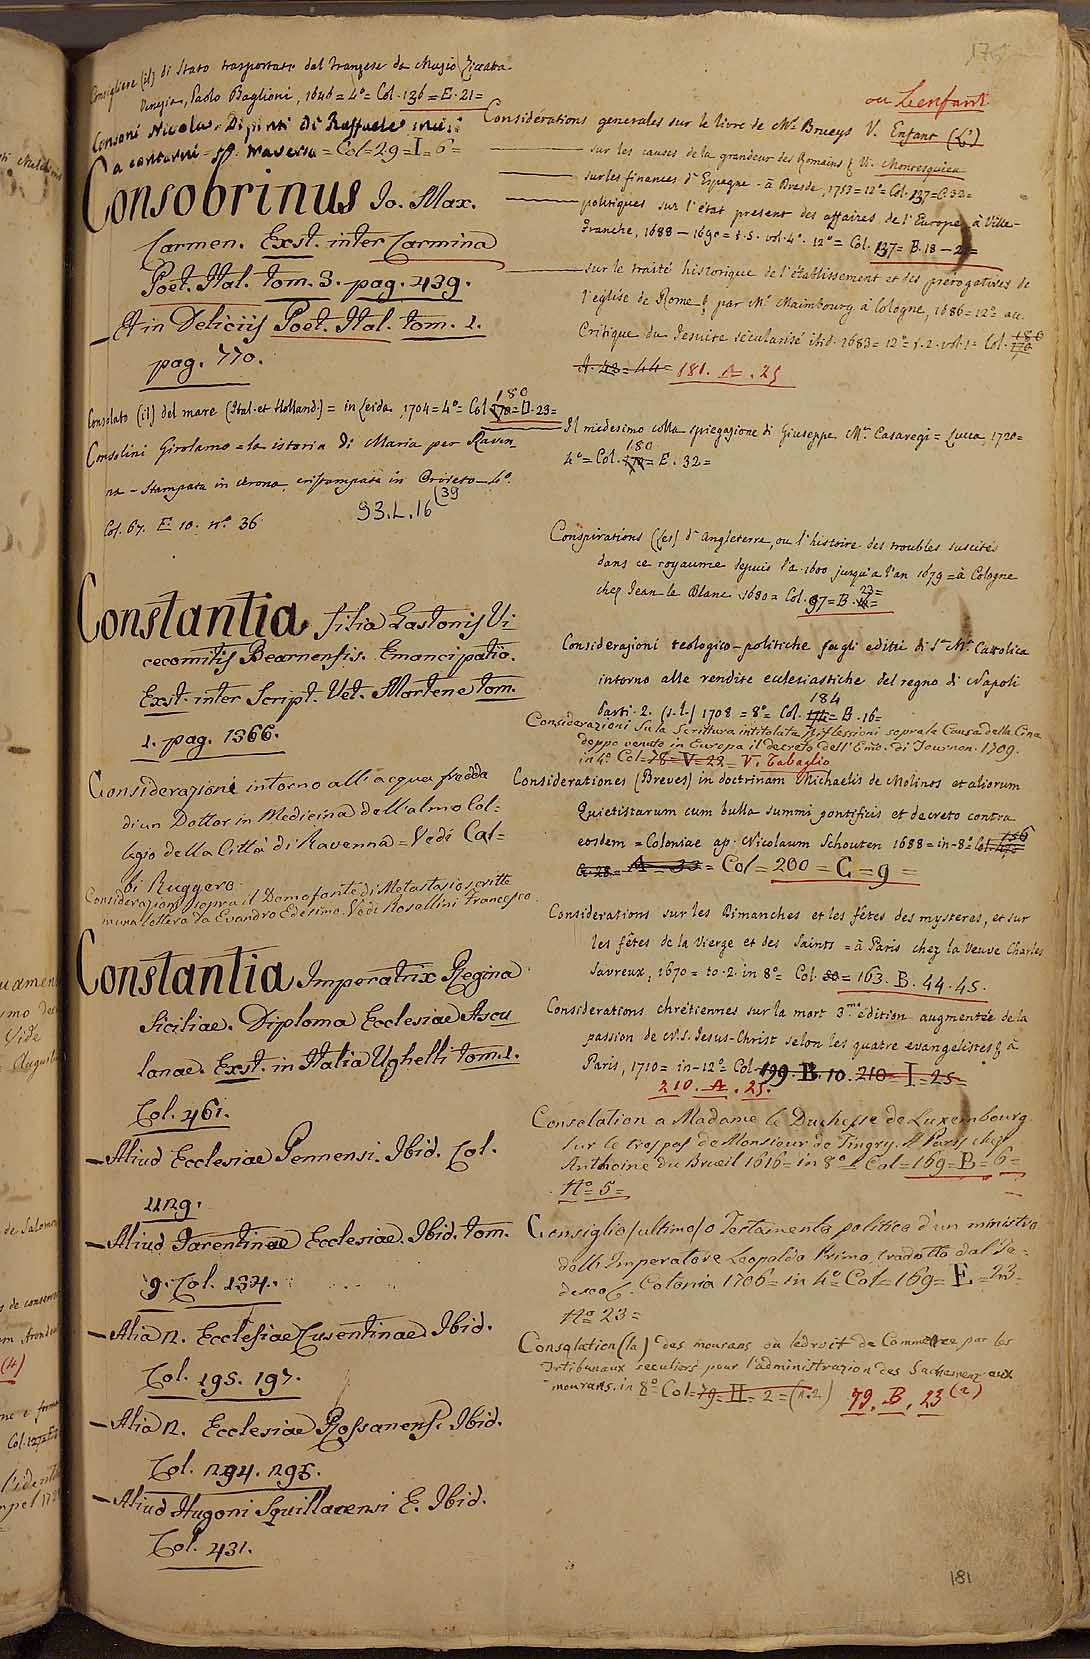 Consigliere (il) di Stato trasportato dal Franzese da Muzio Ziccata
Venezia, Paolo Baglioni, 1646 = 4º = Col. 136 = E. 21 =
Consoni Nicola = Dipinti di Raffaele incisi
a contorni = fº. traverso = Col = 29 = I = 6 =
Consobrinus Jo. Max.
Carmen. Exst. inter Carmina
Poet. Ital. tom. 3. pag. 439.
— Et in Deliciis Poet. Ital. tom. 1.
pag. 770.
Consolato (il) del mare (Ital. et Holland.) = in Leida 1704 = 4º = Col 170 180 = D. 23 =
Consolini Girolamo = la istoria di Maria per Raven
na - Stampata in Verona, ristampata in Orvieto - 4º.
Col. 67. E 10. nº 36
93. L. 16 (39
Constantia filia Gastonis Vi
cecomitis Bearnensis. Emancipatio.
Exst. inter Script. Vet. Martene tom.
1. pag. 1366.
Considerazioni intorno all'acqua fredda
di un Dottor in Medicina dell'almo Col=
legio della Città di Ravenna = Vedi Cal=
bi Ruggero.
Considerazioni sopra il Demofonte di Metastasio scritte
in una lettera da Evandro Edesimo. Vedi Rosellini Francesco
Constantia Imperatrix Regina
Siciliae. Diploma Ecclesiae Ascu
lanae. Exst. in Italia Ughelli tom. 1.
Col. 461.
— Aliud Ecclesiae Pennensi. Ibid. Col.
1129.
— Aliud Tarentinae Ecclesiae. Ibid. tom.
9. Col. 134.
— Alia 2. Ecclesiae Cusentinae. Ibid.
Col. 195. 197.
— Alia 2. Ecclesiae Rossanens. Ibid.
Col. 294. 295.
— Aliud Hugoni Squillacensi E. Ibid.
Col. 431.
ou Lenfant
Considérations generales sur le livre de Mr. Brueys V. Enfant (L')
— sur les causes de la grandeur des Romains & V. Montesquieu
— sur les finances d'Espagne - à Dresde, 1753 = 12º = Col. 137 = C. 32 =
— politiques sur l'état present des affaires de l'Europe, à Ville-
Franche, 1688 - 1690 = t. 5. vol. 4º. 12º = Col. 137 = B. 18 -
— sur le traité historique de l'établissement et des prerogatives de
l'église de Rome & par Mr. Maimbourg à Cologne, 1686 = 12º au
Critique du Jesuite sécularisé ibid. 1683 = 12º = t. 2. vol. 1 = Col. 170 180
A. 43 = 44 = 181. A. 25
— Il medesimo colla spiegazione di Giuseppe Mª. Casaregi = Lucca, 1720 =
4º = Col. 170 180 = E. 32 =
Conspirations (les) d'Angleterre, ou l'histoire des troubles suscités
dans ce royaume depuis l'a. 1600 jusqu'a l'an 1679 = à Cologne
chez Jean le Blanc 1680 = Col. 97 = B. 23 =
Considerazioni teologico-politiche fa gli editti di Sª. Mª. Cattolica
intorno alle rendite ecclesiastiche del regno di Napoli
Parti. 2. (s. l.) 1708 = 8º = Col. 174 184 = B. 16 =
Considerazioni su la Scrittura intitolata Riflessioni sopra la Causa della Cina
doppo venuto in Europa il decreto dell'Emo. di Tournon. 1709.
in 4º Col = 78 = V = 22 = V. Tabaglio
Considerationes (Breves) in doctrinam Michaelis de Molinos et aliorum
Quietistarum cum bulla summi pontificis et decreto contra
eosdem = Coloniae ap. Nicolaum Schouten 1688 = in-8º Col. 156
G. 28 = A = 33 = Col = 200 = G = 9 =
Considerations sur les Dimanches et les fêtes des mysteres, et sur
les fêtes de la Vierge et des Saints = à Paris chez la Veuve Charles
Savreux, 1670 = to. 2. in 8º = Col. 80 = 163. B. 44. 45.
Considerations chrétiennes sur la mort 3me. édition augmentée de la
passion de N. S. Jesus-Christ selon les quatre evangelistes & à
Paris, 1710 = in-12º = Col. 199. B. 10. 210 = I = 25 =
210. A. 25.
Consolation a Madame le Duchesse de Luxembourg
sur le trespas de Monsieur de Tingry. A Paris chez
Anthoine du Brueil 1616 = in 8º = Col = 169 = B = 6 =
Nº = 5 =
Consiglio (ultimo) o Testamento politico d'un ministro
dell'Imperatore Leopoldo Primo tradotto dal Te=
desco &. Colonia 1706 = in 4º = Col = 169 = E = 23 =
Nº = 23 =
Consolation (la) des mourans ou le droit de Commettre par les
Tribunaux seculiers pour l'administrazion des Sacremens aux
mourans. in 8º = Col = 79 = H = 2 = (n. 2.) 79. B. 23 (2)
181